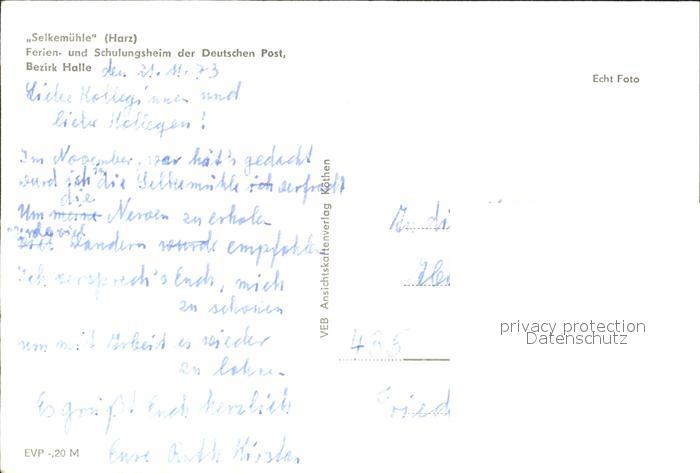 „Selkemühle" (Harz)
Ferien- und Schulungsheim der Deutschen Post,
Bezirk Halle den 21.11.73
Echt Foto
Liebe Kolleginnen und
liebe Kollegen!
Im November, wer hät's gedacht
ward ich in die Selkemühle ich verfracht
die
Um meine Nerven zu erholen
wurde viel
Wandern wurde empfohlen
Ich versprech's Euch, mich
zu schonen
um mit Arbeit es wieder
zu lohnen
Es grüßt Euch herzlich
Eure Ruth
EVP -,20 M
VEB Ansichtskartenverlag Köthen
An di
435
Fried
privacy protection
Datenschutz